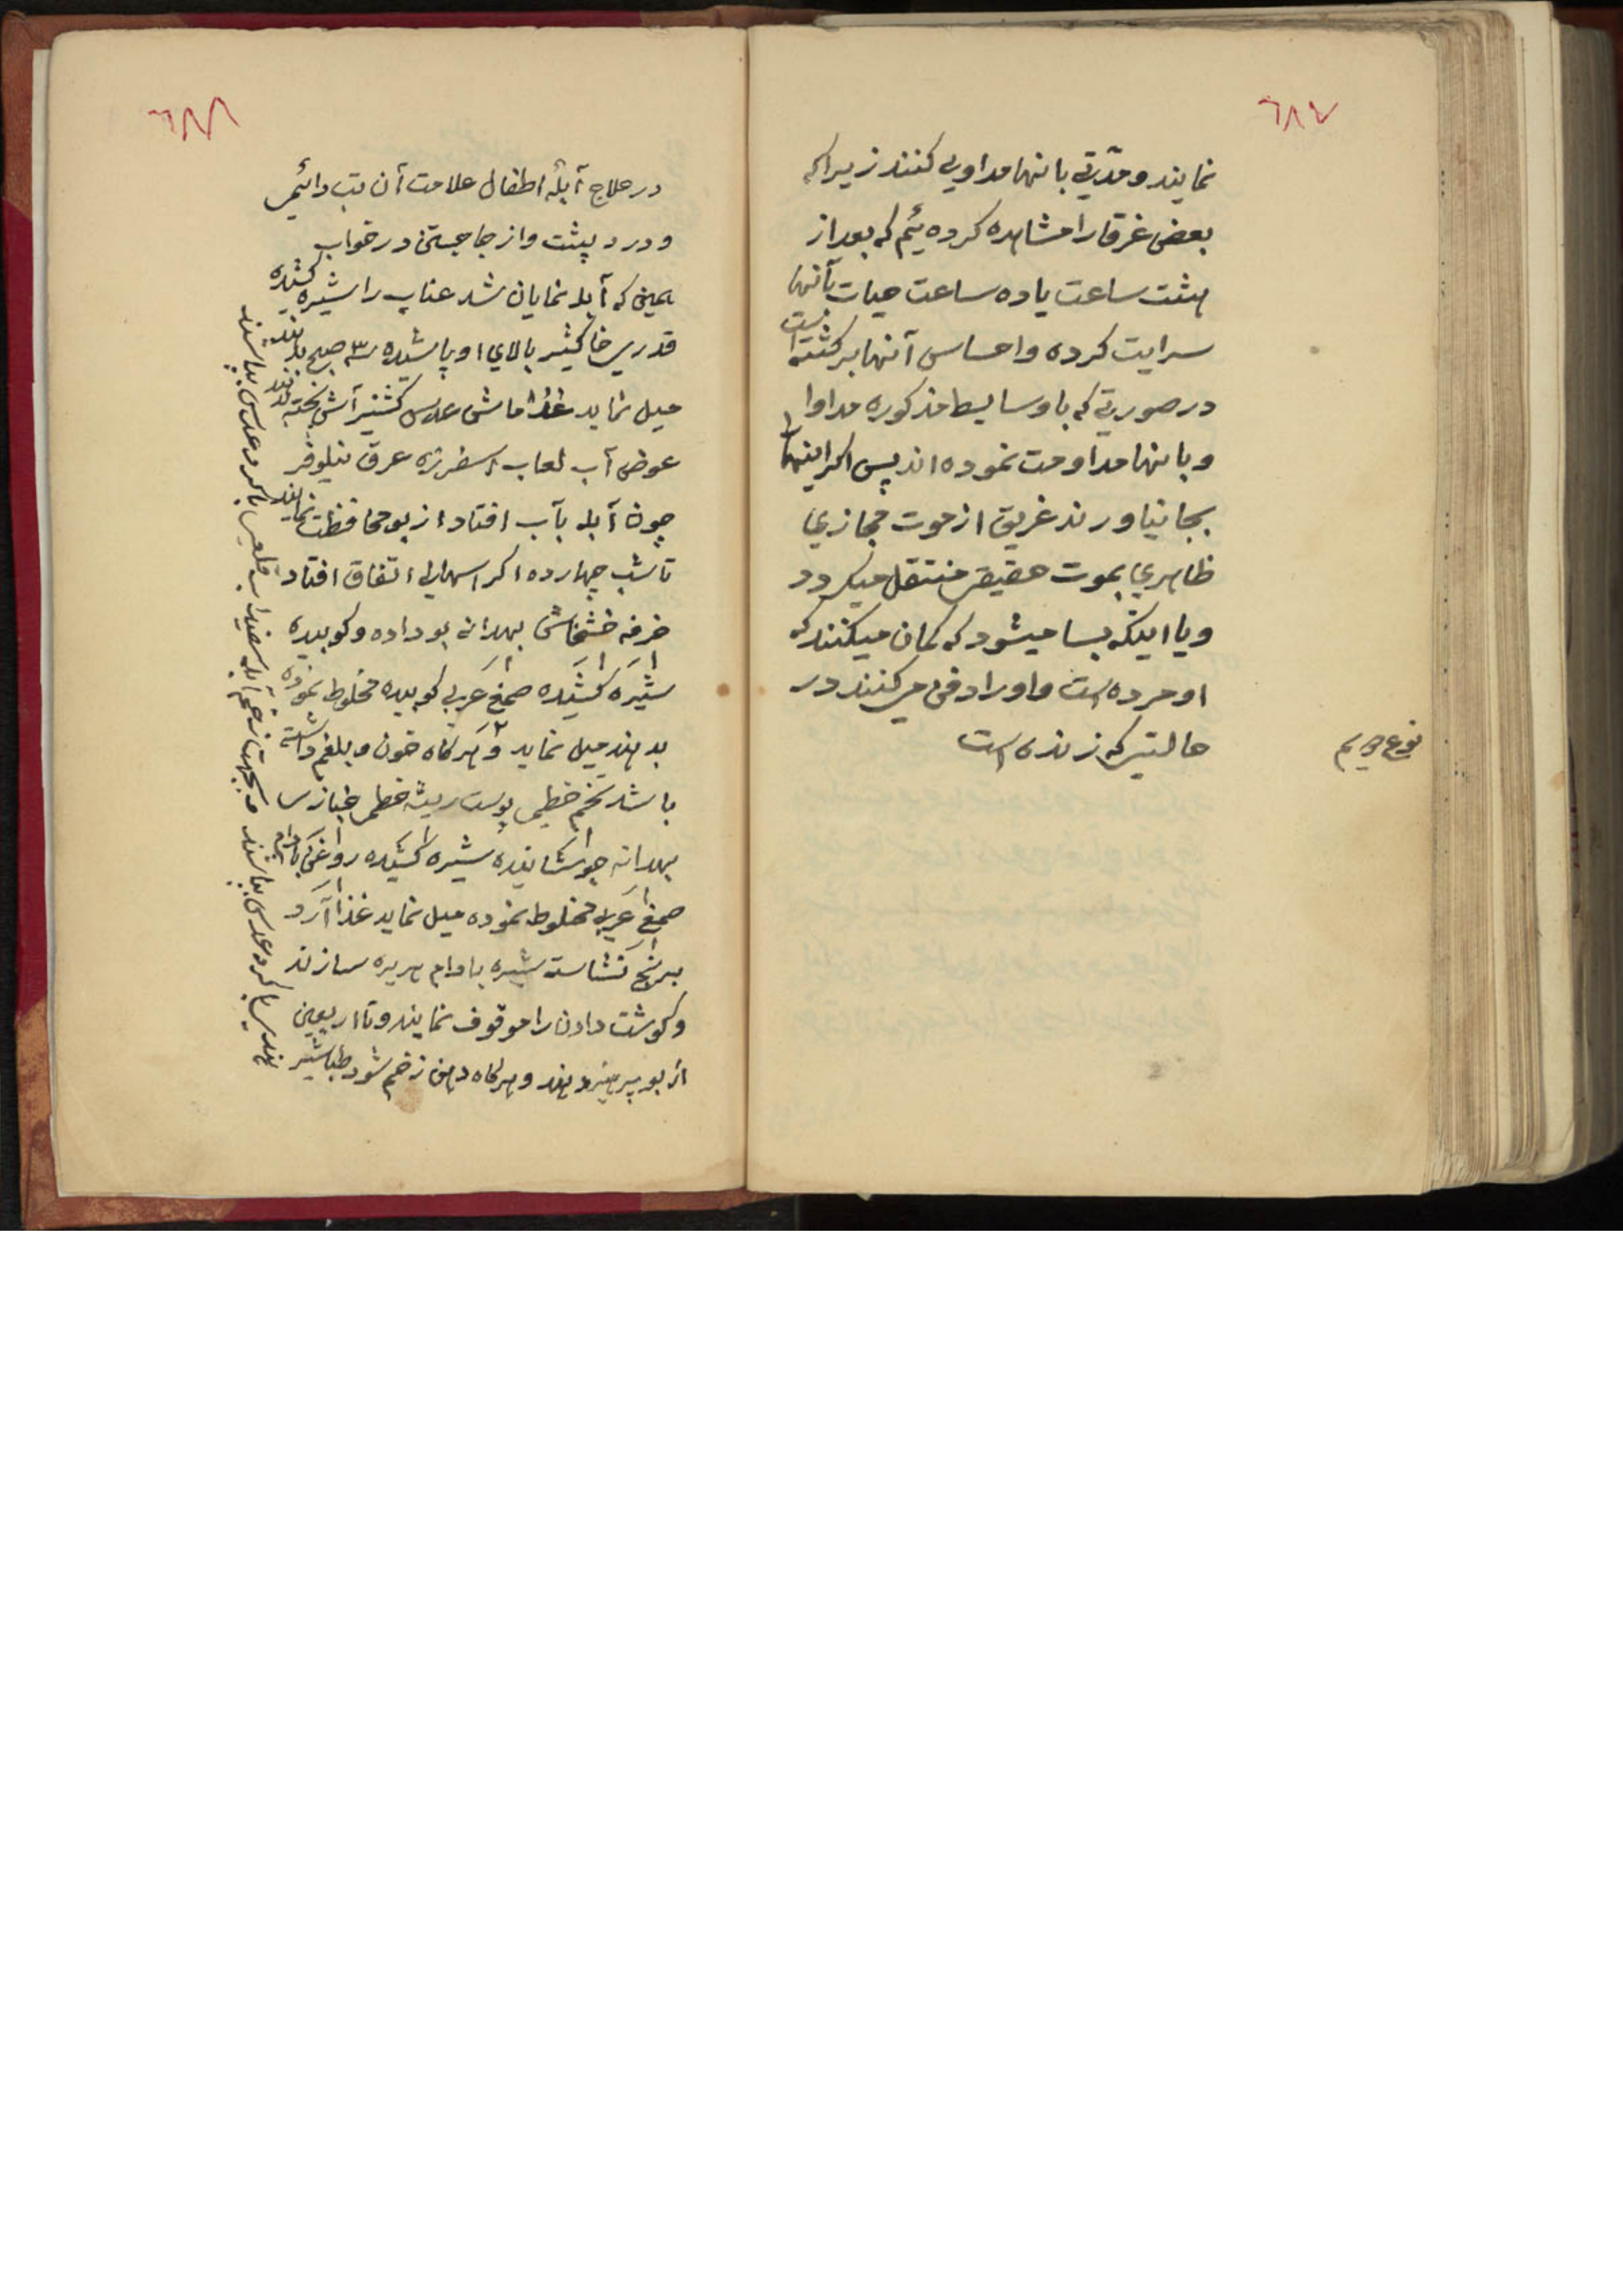 ٦٨٧
نمایند و مدّتی بانها مداوی کنند زیرا که
بعضی غرقا را مشاهده کرده یٔم که بعد از
هشت ساعت یا ده ساعت حیات بآنها
سرایت کرده و احساس آنها برکشته است
در صورتی که با وسایط مذکوره مداوا
و بانها مداومت نموده اند پس اکر اینها را
بجا نیاورند غریق از موت مجازي
ظاهري بموت حقیقی منتقل میکردد
و یا اینکه بسا میشود که کمان میکنند که
او مرده است و او را دفن می کنند در
حالتی که زنده است
نوع
٦٨٨
در علاج آبلهٔ اطفال علامت آن تب دائمی
و درد پشت و از جا جستن در خواب
همین که آبله نمایان شد عناب را شیره کشیده
قدری خاکشیر بالاي او پاشیده ٣ صبح بدهند
میل نماید غذا ماش عدس کشنیز آش پخته بدهند
عوض آب لعاب اسفرزه عرق نیلوفر
چون آبله بآب افتاد از بو محافظت نمایند
تا شب چهارده اکر اسهالی اتفاق افتاد
خرفه خشخاش بهدانه بو داده و کوبیده
شیره کشیده صمغ عربی کوبیده مخلوط نموده
بدهند میل نماید و هرکاه خون و بلغم داشته
باشد تخم خطمی پوست ریشه خطمی خبازی
بهدانه جوشانیده شیره کشیده روغن بادام
صمغ عربی مخلوط نموده میل نماید غذا آرد
برنج نشاسته شیره بادام حریره سازند
و کوشت دادن را موقوف نمایند و تا اربعین
از بو پرهیز دهند و هرکاه دهن زخم شود طباشیر
هندی با کرد عدس بپاشند و بجهت زخم آبله سفیداب قلعی با کرد عدس بپاشند